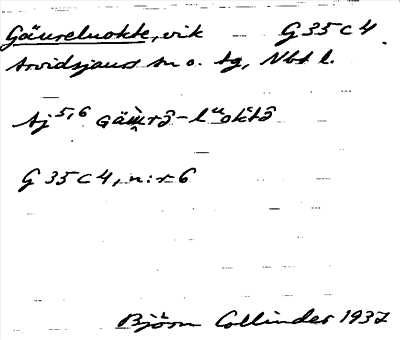 Gäureluokte, vik G 35 C 4.
Arvidsjaurs sn o. tg, Nbt l.
Aj 5,6
G 35 C 4, n:r 6
Björn Collinder 1937